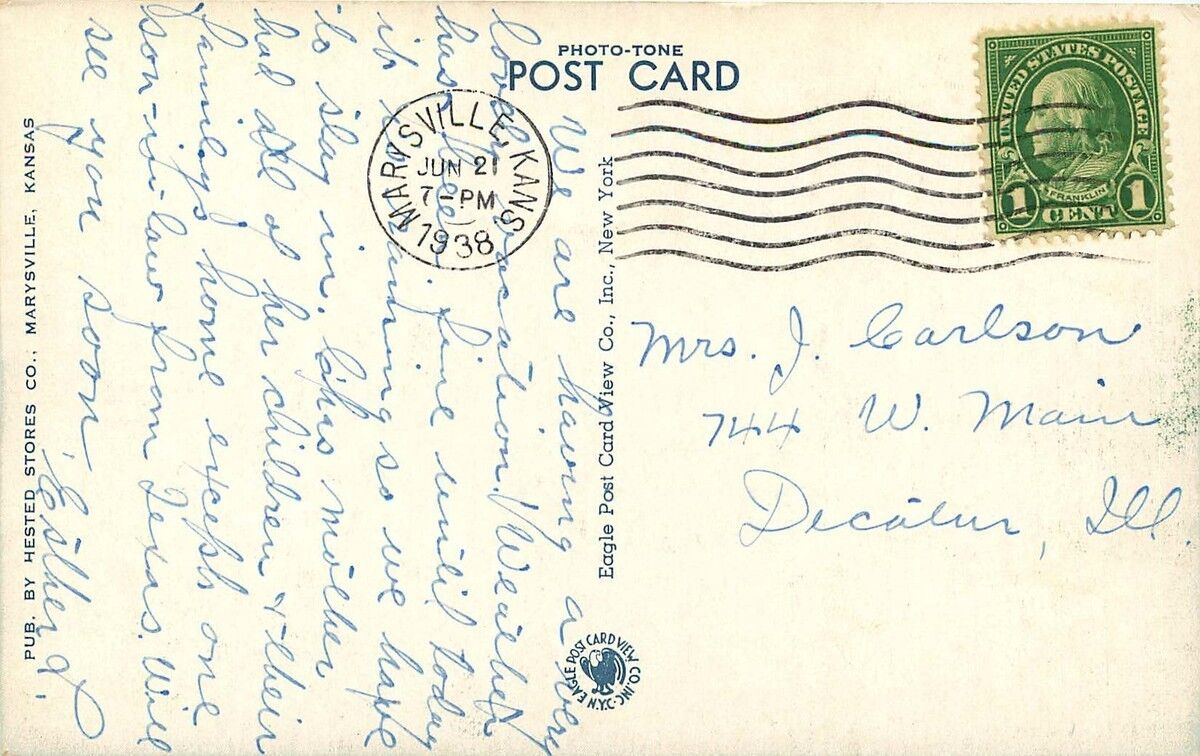 PHOTO-TONE
POST CARD
UNITED STATES POSTAGE
FRANKLIN
1 CENT 1
MARYSVILLE, KANS
JUN 21
7-PM
1938
Mrs. J. Carlson
744 W. Main
Decatur, Ill.
We are having a very
lovely vacation. Weather
has been fine until today
it is raining so we have
to stay in. Chas mother
had all of her children & their
familys home except one
son-in-law from Texas. Will
see you soon.
Esther
Eagle Post Card View Co., Inc., New York
EAGLE POST CARD VIEW CO. INC. N.Y.C.
PUB. BY HESTED STORES CO., MARYSVILLE, KANSAS